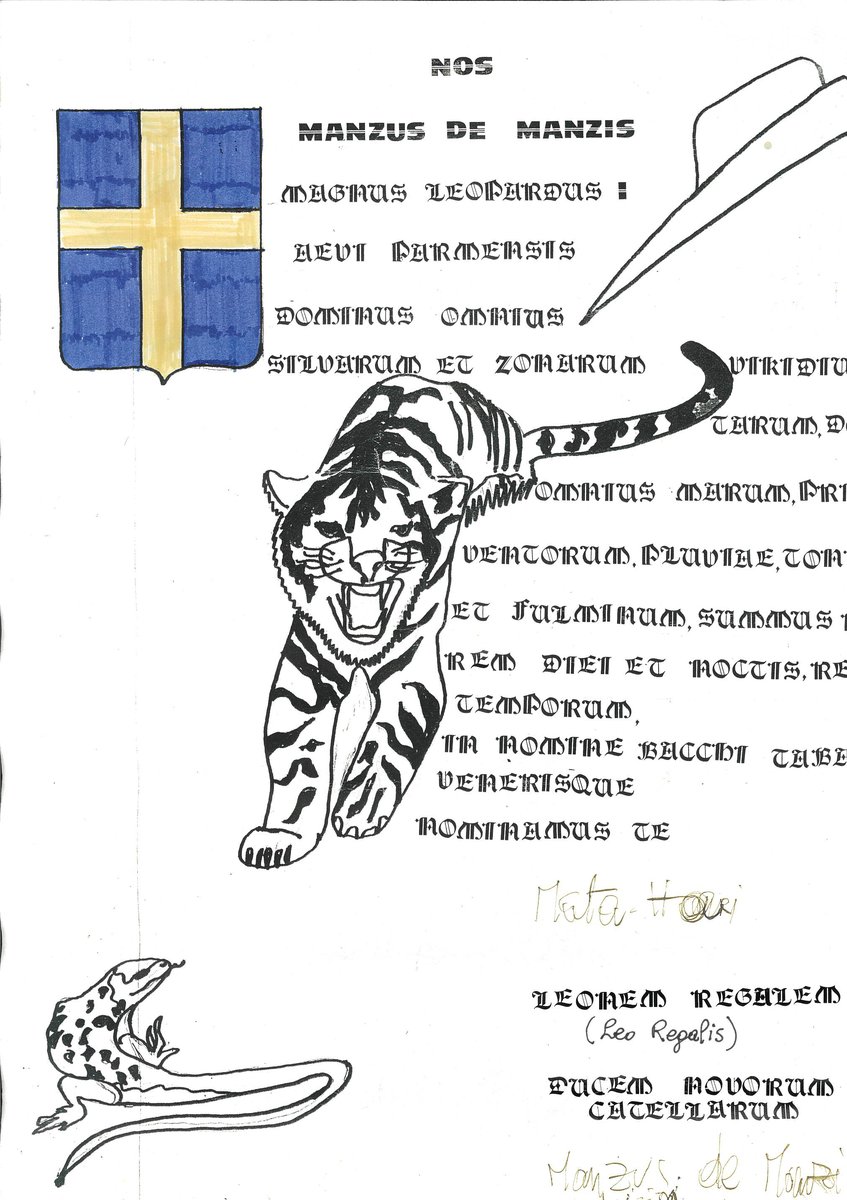 NOS
MANZUS DE MANZIS
MAGNUS LEOPARDUS :
AEVI PARMENSIS
DOMINUS OMNIUS
SILVARUM ET ZONARUM VIRIDIU
TARUM, DO
OMNIUS MARUM, PRI
VENTORUM, PLUVIAE, TON
ET FULMINUM, SUMMUS
REM DIEI ET NOCTIS, RE
TEMPORUM,
IN NOMINE BACCHI TABA
VENERISQUE
NOMINAMUS TE
Mata-Hari
LEONEM REGALEM
(Leo Regalis)
DUCEM NOVORUM
CATELLARUM
Manzus de Manzi